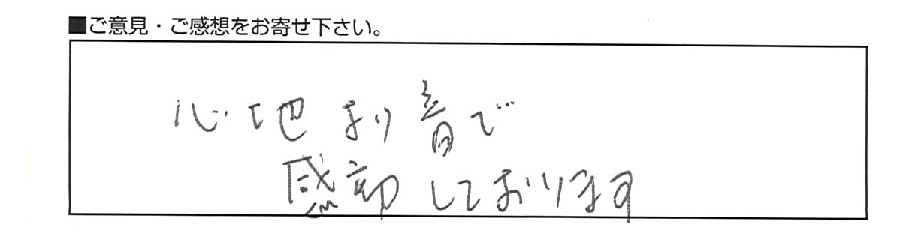 ■ご意見・ご感想をお寄せ下さい。
心地より音で
感動しております